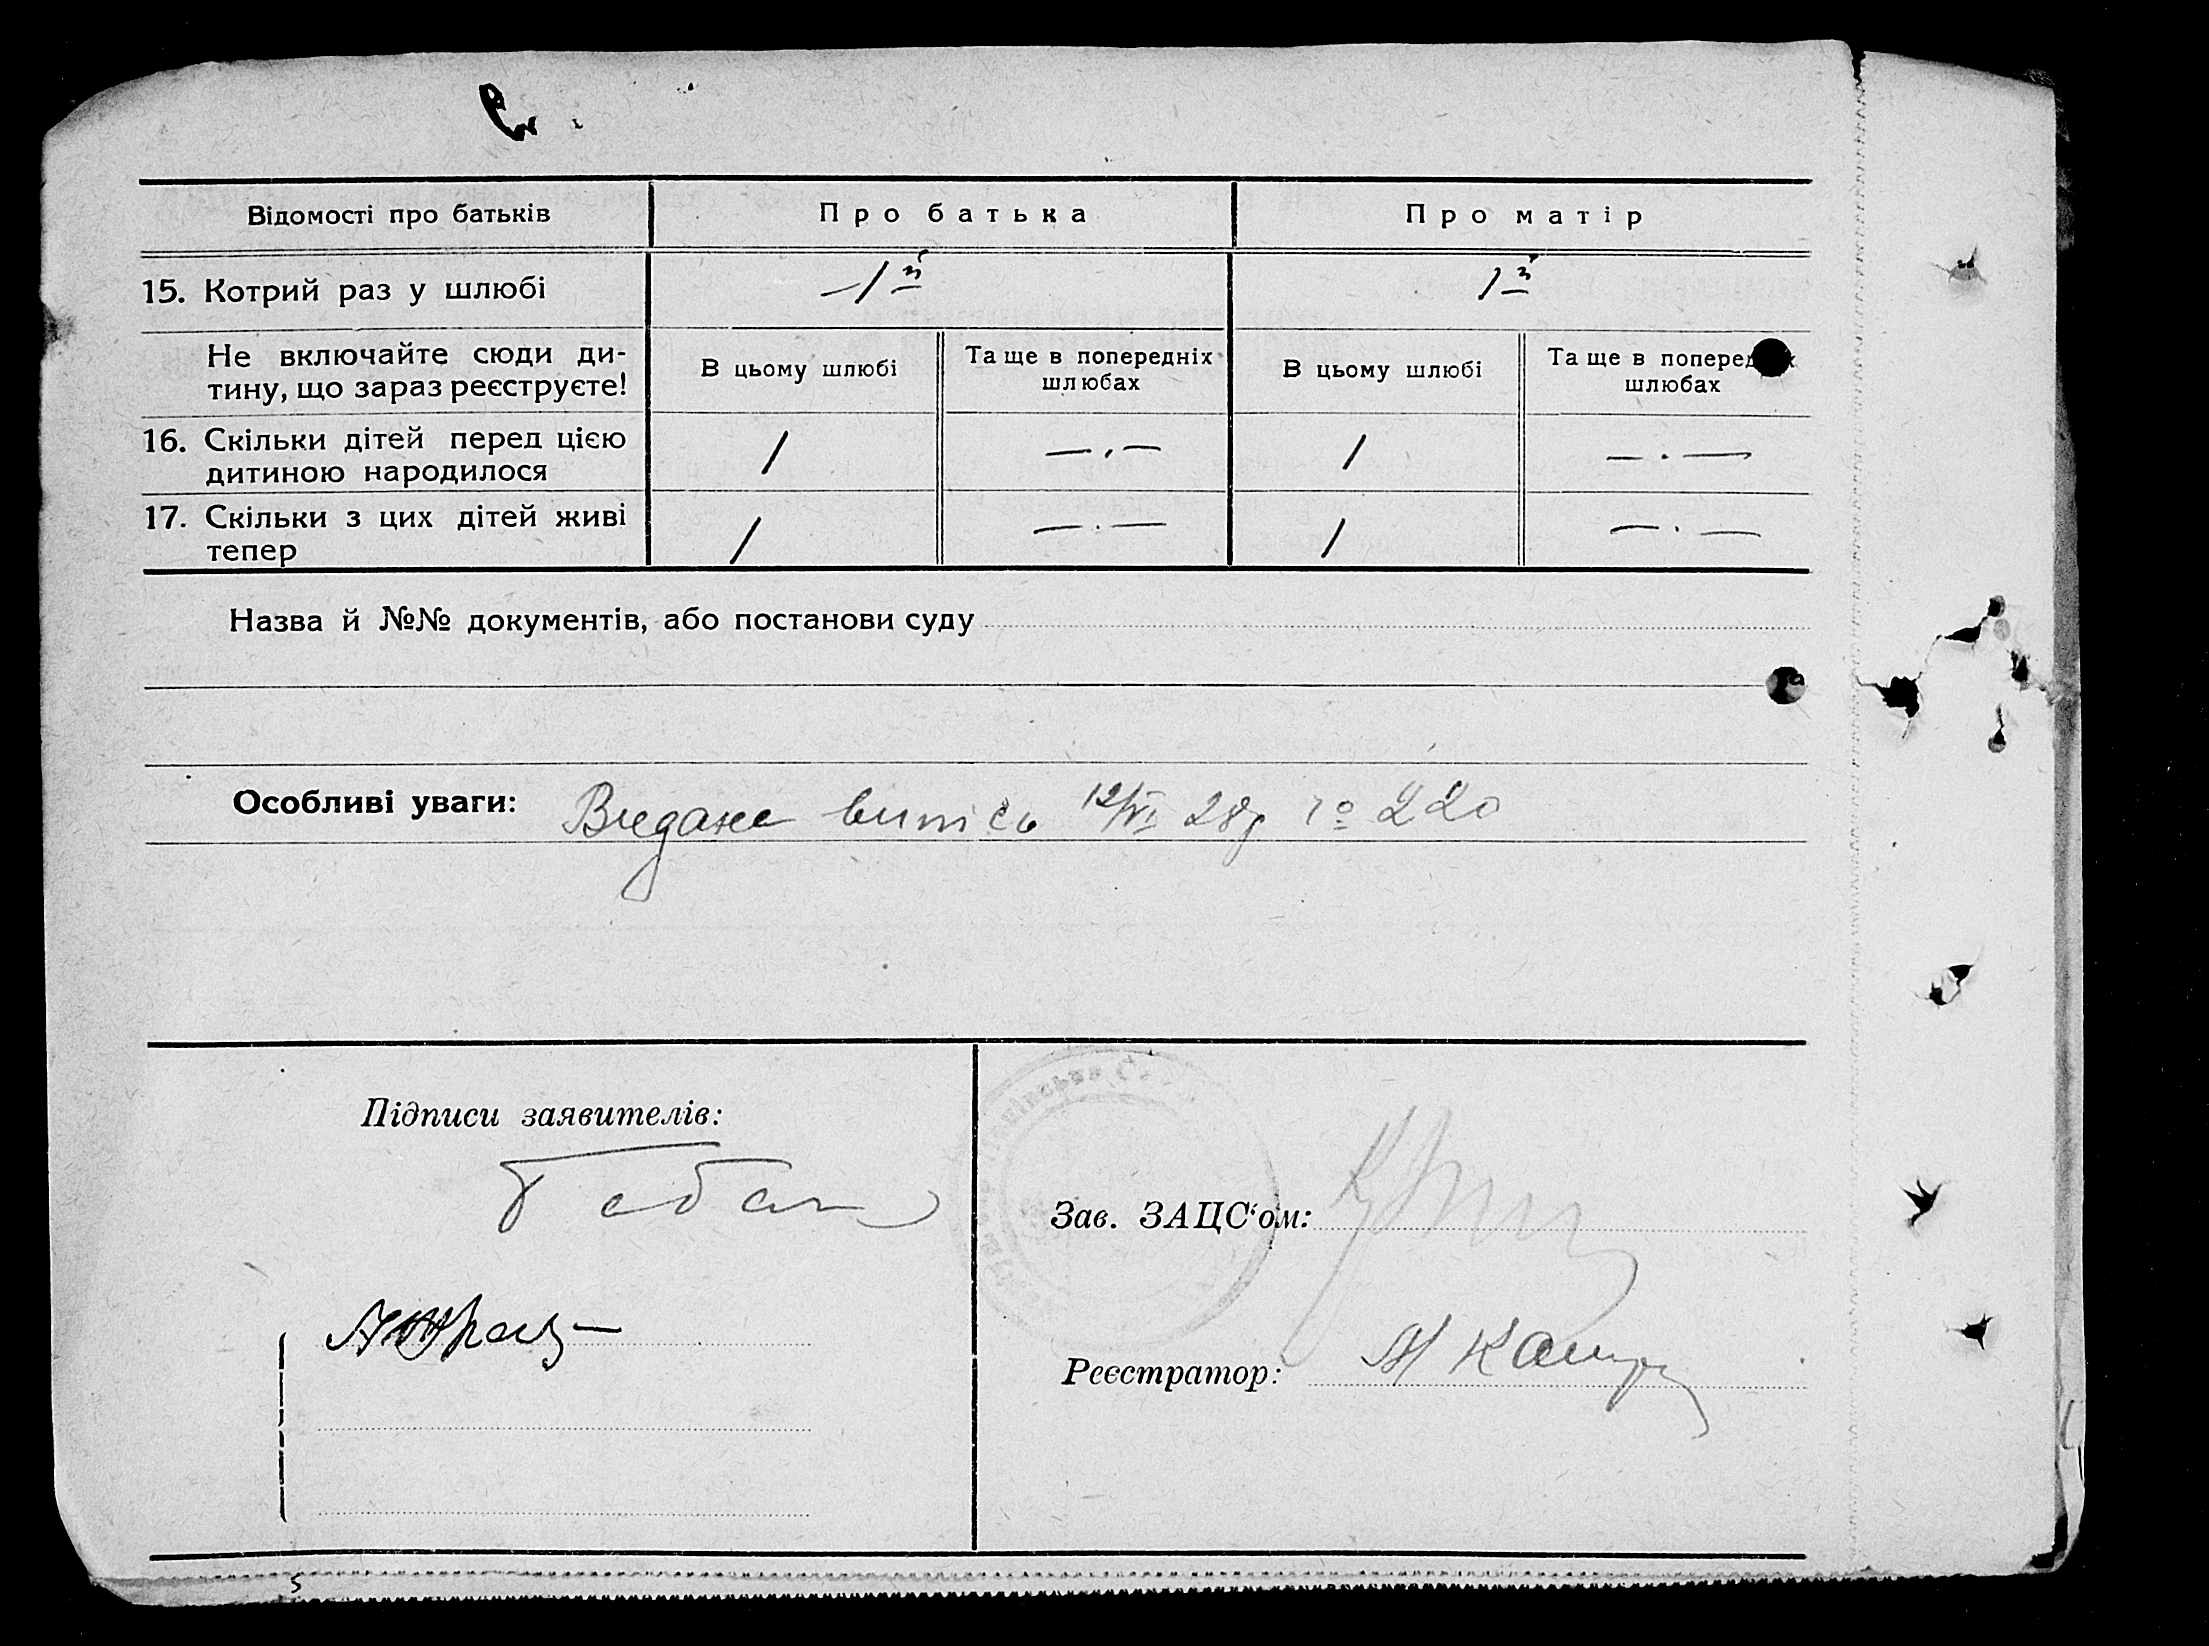 Відомості про батьків
Про батька
Про матір
15. Котрий раз у шлюбі
1й
1й
Не включайте сюди ди-
тину, що зараз реєструєте!
В цьому шлюбі
Та ще в попередніх
шлюбах
В цьому шлюбі
Та ще в попередніх
шлюбах
16. Скільки дітей перед цією
дитиною народилося
1
— . —
1
— . —
17. Скільки з цих дітей живі
тепер
1
— . —
1
— . —
Назва й №№ документів, або постанови суду
Особливі уваги: Видане випись 12/VI 28р 220
Підписи заявителів:
Зав. ЗАЦС‘ом:
Реєстратор: